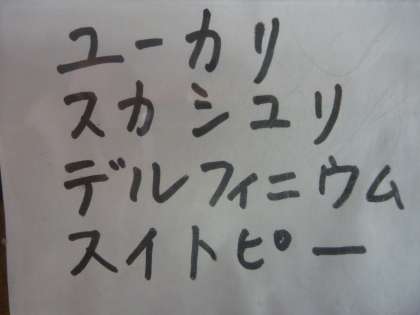 ユーカリ
スカシユリ
デルフィニウム
スイトピー